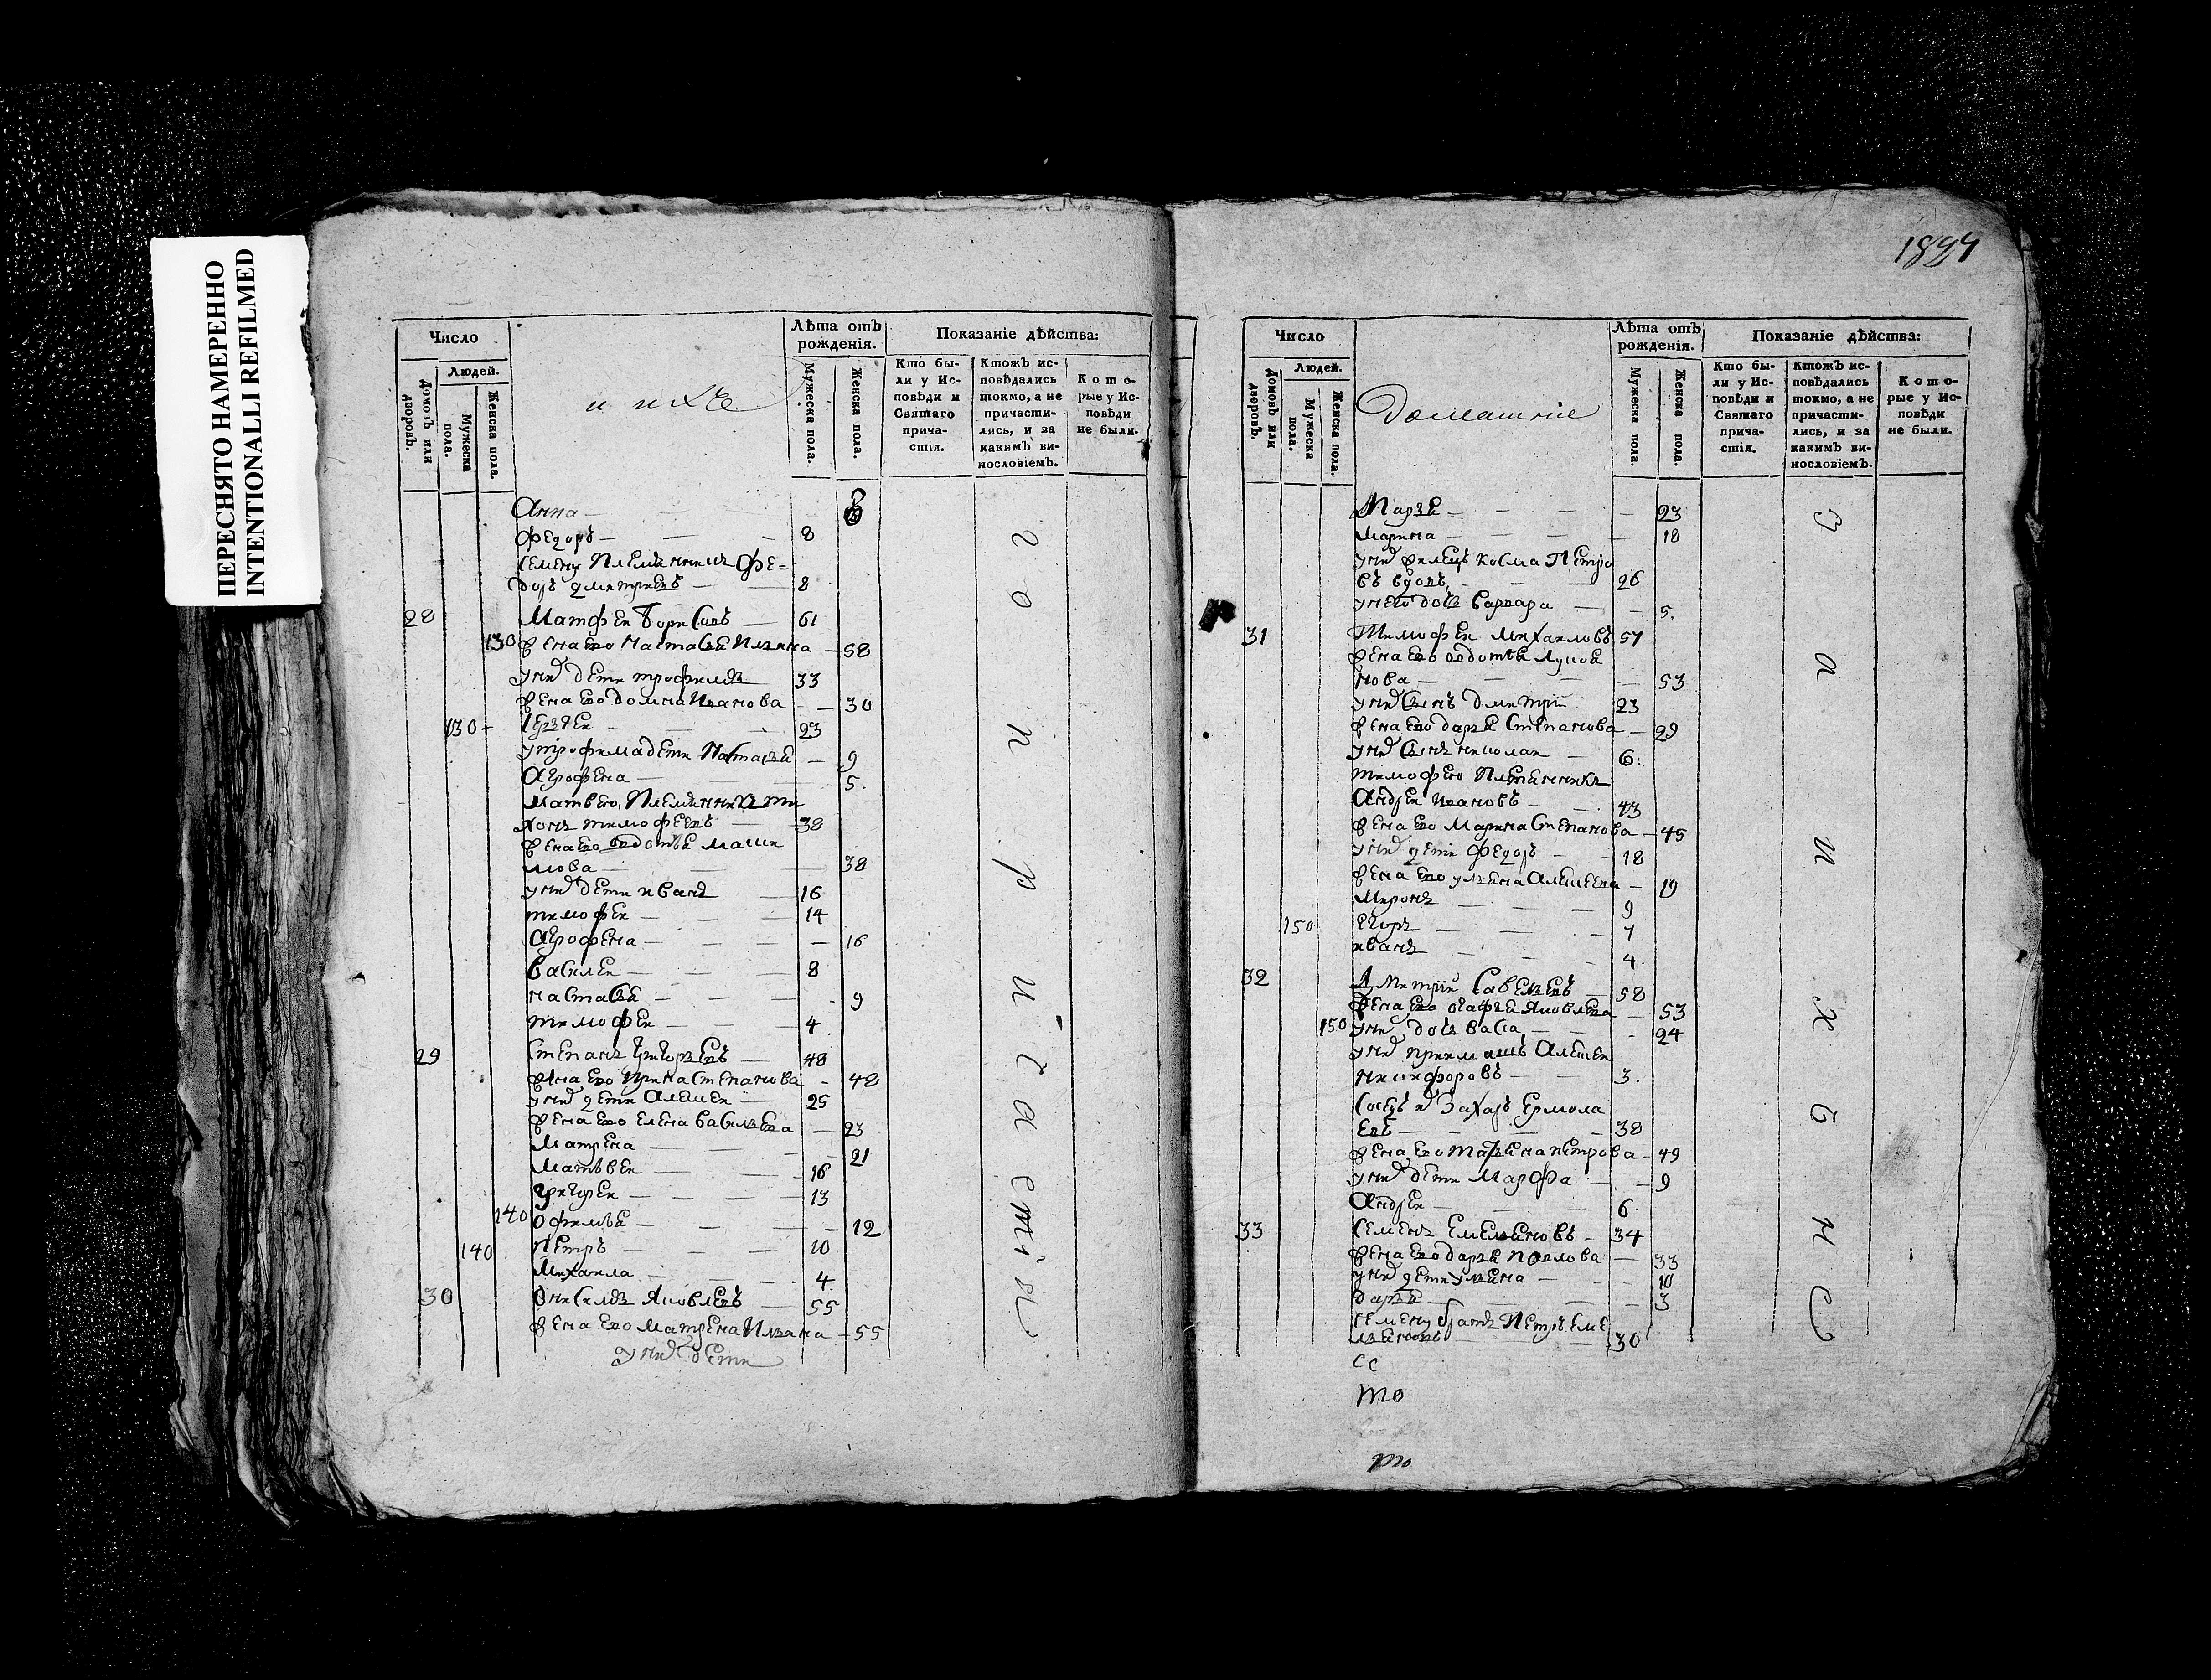 ПЕРЕСНЯТО НАМЕРЕННО
INTENTIONALLI REFILMED
Число
Людей.
Домовъ или дворовъ.
Мужеска пола.
Женска пола.
и ихъ
Лѣта отъ рожденія.
Мужеска пола.
Женска пола.
Показаніе дѣйства:
Кто были у Исповѣди и Святаго причастія.
Ктожъ исповѣдались токмо, а не причастились, и за какимъ винословіемъ.
Которые у Исповѣди не были.
Анна
Федоръ 8
Семену племянникъ Фе=
доръ Дмитриевъ 8
28 Матфеи Борисовъ 61
130 жена ево Настасья Ильина 58
у них дети Трофимъ 33
жена ево Домна Иванова 30
130 Сергеи 23
у Трофима дети Настасья 9
Агрофена 5.
Матвею племянникъ Ти
хонъ Тимофеевъ 38
жена ево Евдотья Маши
мова 38
у них дети Иванъ 16
Тимофеи 14
Агрофена 16
Василеи 8
Настасья 9
Тимофеи 4
29 Степанъ Григорьевъ 48
жена ево Ирина Степанова 48
у них дети Алексеи 25
жена ево Елена Васильева 23
Матрена 21
Матвеи 16
Григореи 13
140 Офимья 12
140 Петръ 10
Михаила 4
30 Онисимъ Яковлевъ 55
жена ево Матрена Ильина 55
у них дети
г о п р и ч а с т і я
1824
Число
Людей.
Домовъ или дворовъ.
Мужеска пола.
Женска пола.
Домашние
Лѣта отъ рожденія.
Мужеска пола.
Женска пола.
Показаніе дѣйства:
Кто были у Исповѣди и Святаго причастія.
Ктожъ исповѣдались токмо, а не причастились, и за какимъ винословіемъ.
Которые у Исповѣди не были.
Марья 23
Марина 18
у них жилецъ Косма Петро
въ вдовъ 26
у него дочь Варвара 5.
31 Тимофеи Михаиловъ 57
жена ево Евдотья Лукоя
нова 53
у них сынъ Дмитрій 23
жена ево Дарья Степанова 29
у них сынъ Николаи 6.
Тимофею племянникъ
Андреи Ивановъ 43
жена ево Марина Степанова 45
у них дети Федоръ 18
жена ево Ульяна Алексеева 19
Миронъ 9
150 Егоръ 7
Иванъ 4
32 Дмитрій Савельевъ 58
жена ево Агафья Яковлева 53
150 у них дочь Васа 24
у них приимашъ Алексеи
Никифоровъ 3.
Соседъ их Захаръ Ермола
евъ 38
жена ево Татьяна Петрова 49
у них дети Марфа 9
Андреи 6
33 Семенъ Емельяновъ 34
жена ево Дарья Павлова 33
у них дети Ульяна 10
Дарья 3
Семену братъ Петръ Еме
льяновъ 30
сс
то
то